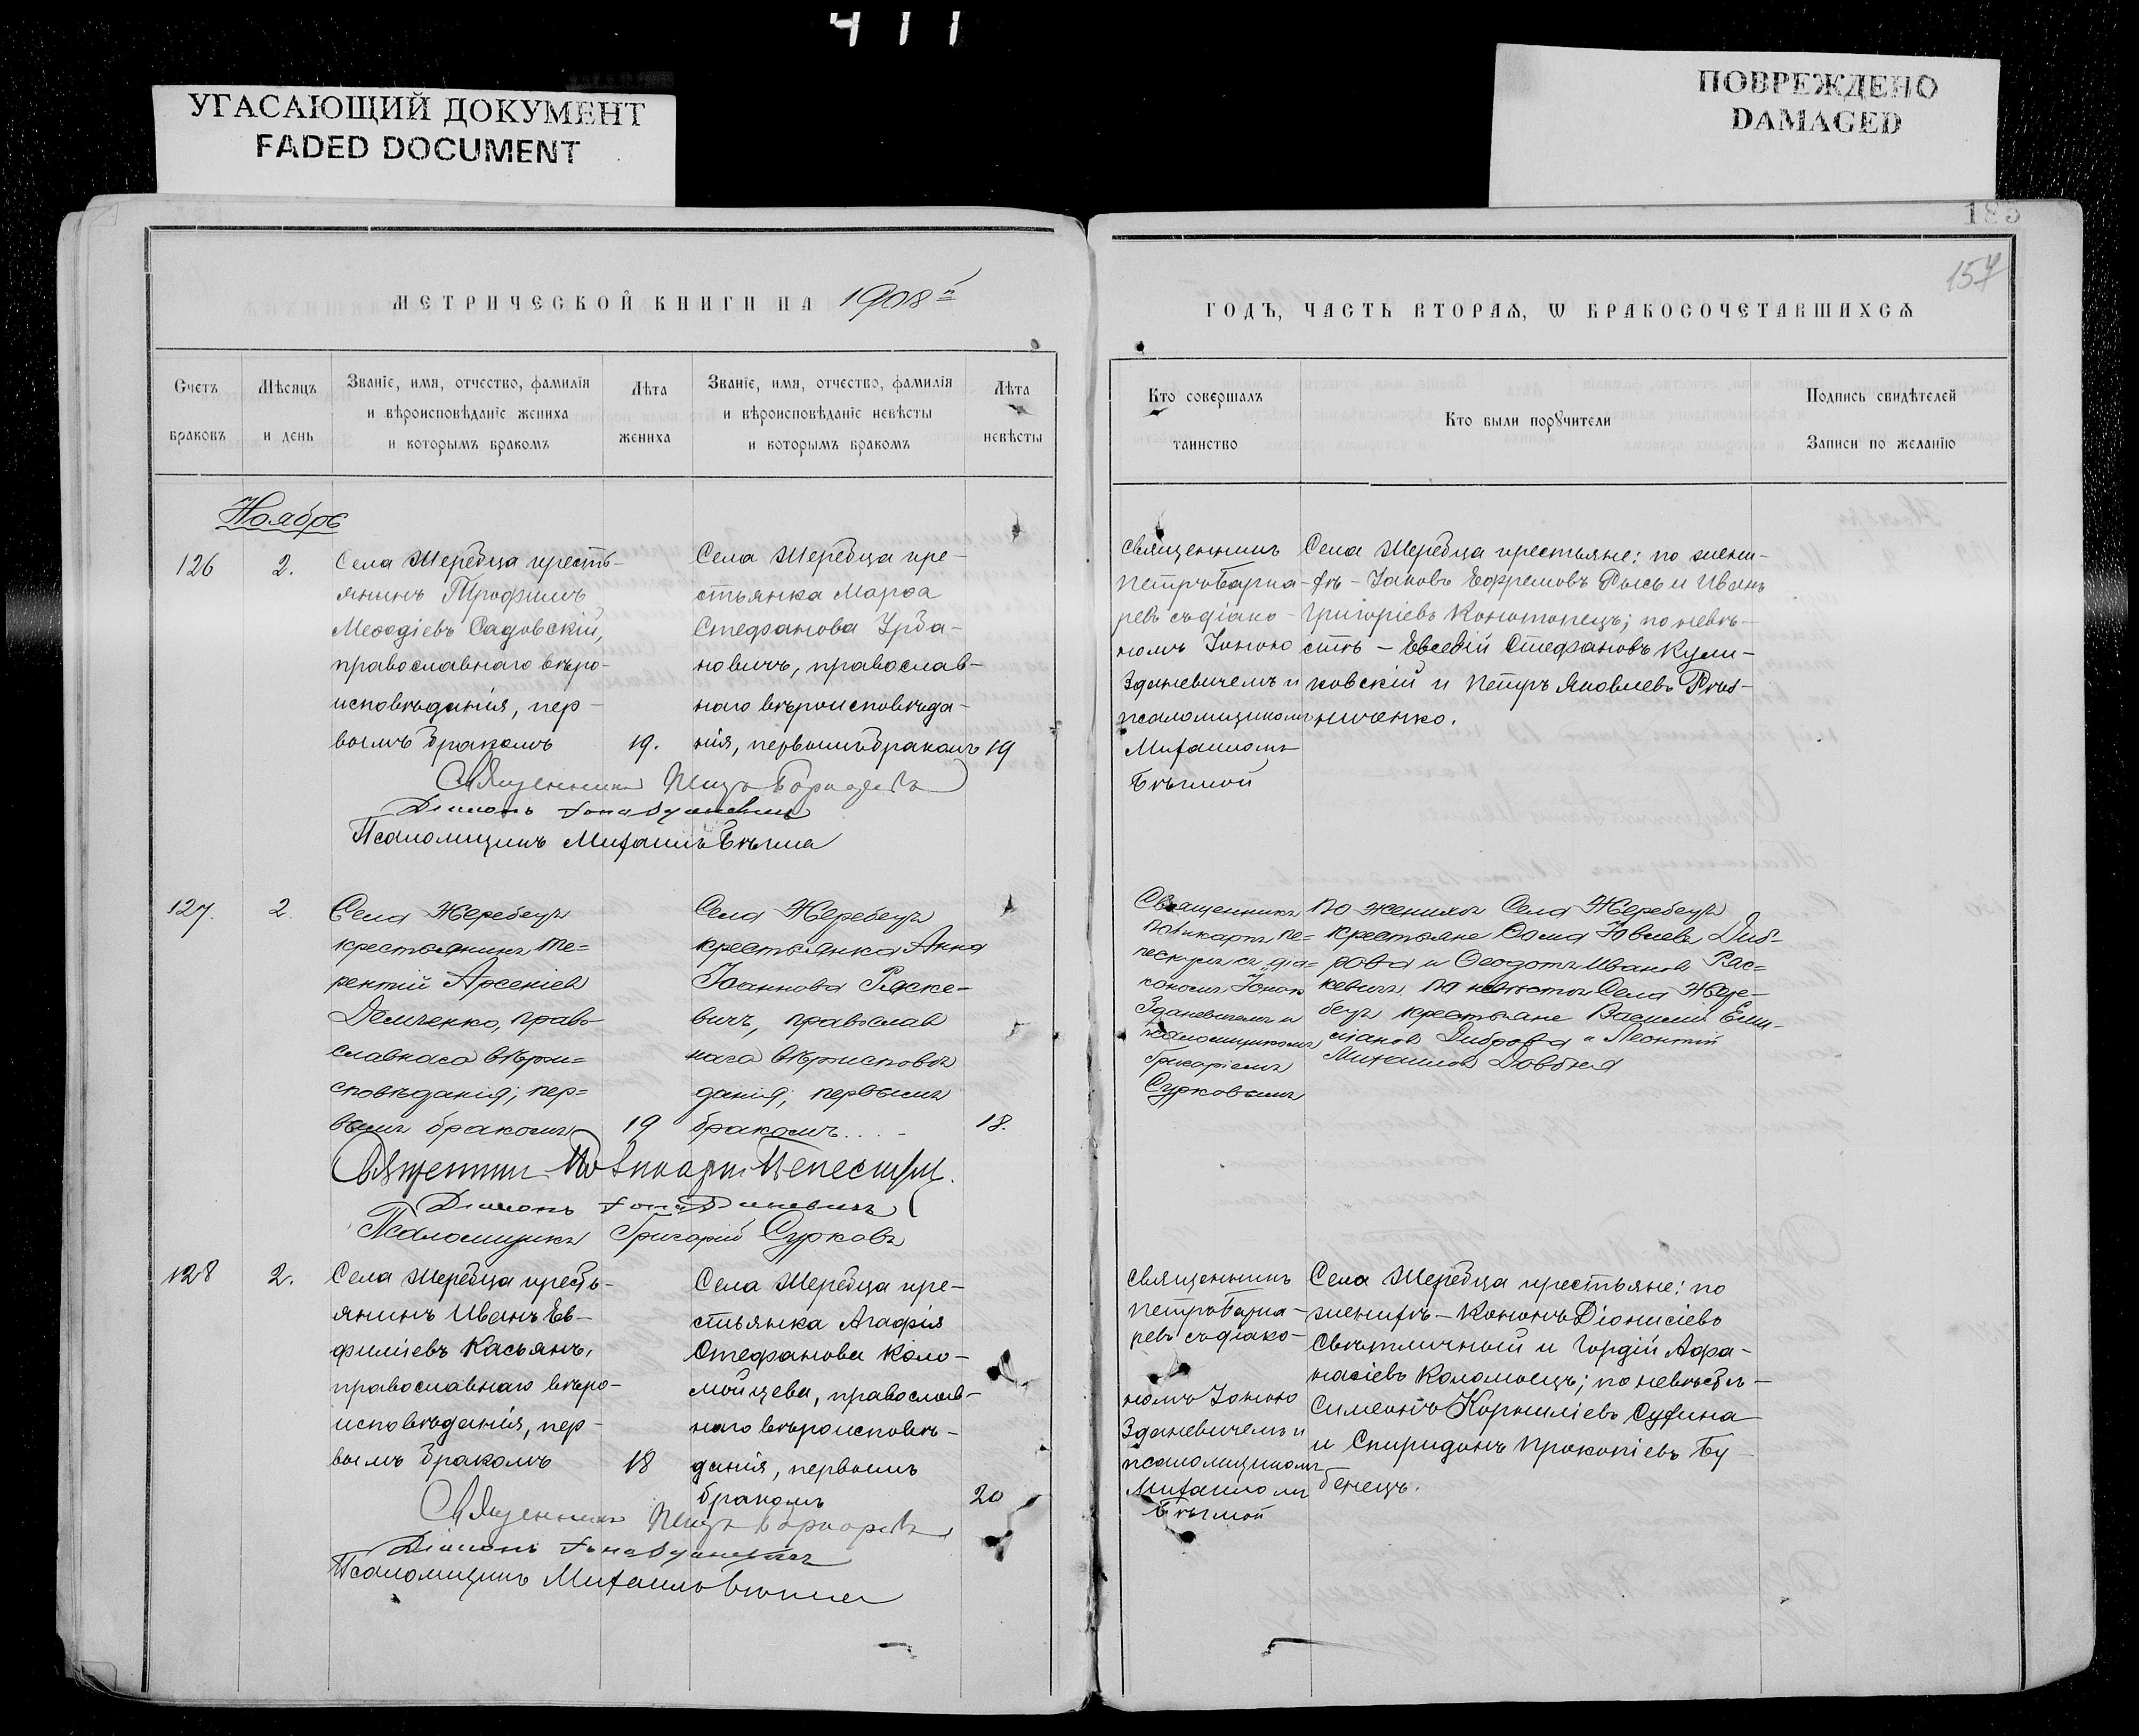 411
УГАСАЮЩИЙ ДОКУМЕНТ
FADED DOCUMENT
ПОВРЕЖДЕНО
DAMAGED
185
157
МЕТРИЧЕСКОЙ КНИГИ НА 1908й
ГОДЪ, ЧАСТЬ ВТОРАѦ, Ѡ БРАКОСОЧЕТАВШИХСѦ
Счетъ
браковъ
Мѣсяцъ
и день
Званіе, имя, отчество, фамилія
и вѣроисповѣданіе жениха
и которымъ бракомъ
Лѣта
жениха
Званіе, имя, отчество, фамилія
и вѣроисповѣданіе невѣсты
и которымъ бракомъ
Лѣта
невѣсты
Кто совершалъ
таинство
Кто были порꙋчители
Подпись свидѣтелей
Записи по желанію
Ноябрь
126
2.
Села Жеребца кресть-
янинъ Трофимъ
Меѳодіевъ Садовскій,
православнаго вѣро-
исповѣданія, пер-
вымъ бракомъ
19.
Села Жеребца кре-
стьянка Марѳа
Стефанова Урба-
новичъ, православ-
наго вѣроисповѣда-
нія, первымъ бракомъ
19
Священникъ
Петръ Барна-
ревъ съ діако-
номъ Іоною
Зданевичемъ и
псаломщикомъ
Михаиломъ
Бѣлмой
Села Жеребца крестьяне: по жени-
хѣ - Іаковъ Ефремовъ Рысь и Иванъ
Григоріевъ Конотопецъ; по невѣ-
стѣ - Евсевій Стефановъ Кули-
ковскій и Петръ Яковлевъ
Священникъ Петръ
Діаконъ Іона Зданевичъ
Псаломщикъ Михаилъ
127.
2
Села Жеребецъ
крестьянинъ Те=
рентій Арсеніев
Демченко, право-
славнаго вѣрои=
сповѣданія; пер=
вымъ бракомъ
19
Села Жеребецъ
крестьянка Анна
Іоаннова Ряске-
вичъ, православ
наго вѣроисповѣ
данія; первымъ
бракомъ...-
18.
Священникъ
съ діа=
кономъ Іоною
Зданевичемъ и
псаломщикомъ
Григоріемъ
Сурковымъ
По женихѣ Села Жеребецъ
крестьяне Ѳома Іовлевъ Диб-
рова и Ѳеодотъ Иванов Ряс=
кевичъ. По невѣстѣ Села Жере-
бецъ крестьяне Василій Еми-
ліанов Диброва и Леонтій
Михаилов Довбня
Священникъ
Діаконъ Іона Зданевичъ
Псаломщикъ Григорій Сурковъ
128
2.
Села Жеребца кресть-
янинъ Иванъ Ев-
филіевъ Касьянъ,
православнаго вѣро-
исповѣданія, пер-
вымъ бракомъ
18
Села Жеребца кре-
стьянка Агафія
Стефанова Коло-
мойцева, православ-
наго вѣроисповѣ-
данія, первымъ
бракомъ
20
Священникъ
Петръ Барна-
ревъ съ діако-
номъ Іоною
Зданевичемъ и
псаломщикомъ
Михаиломъ
Бѣлмой
Села Жеребца крестьяне: по
женихѣ - Кононъ Діонисіевъ
Свѣтличный и Гордій Афа-
насіевъ Коломоецъ; по невѣстѣ -
Симеонъ Корниліевъ Сухина
и Спиридонъ Прокопіевъ Бу-
бенецъ.
Священникъ Петръ
Діаконъ Іона Зданевичъ
Псаломщикъ Михаилъ